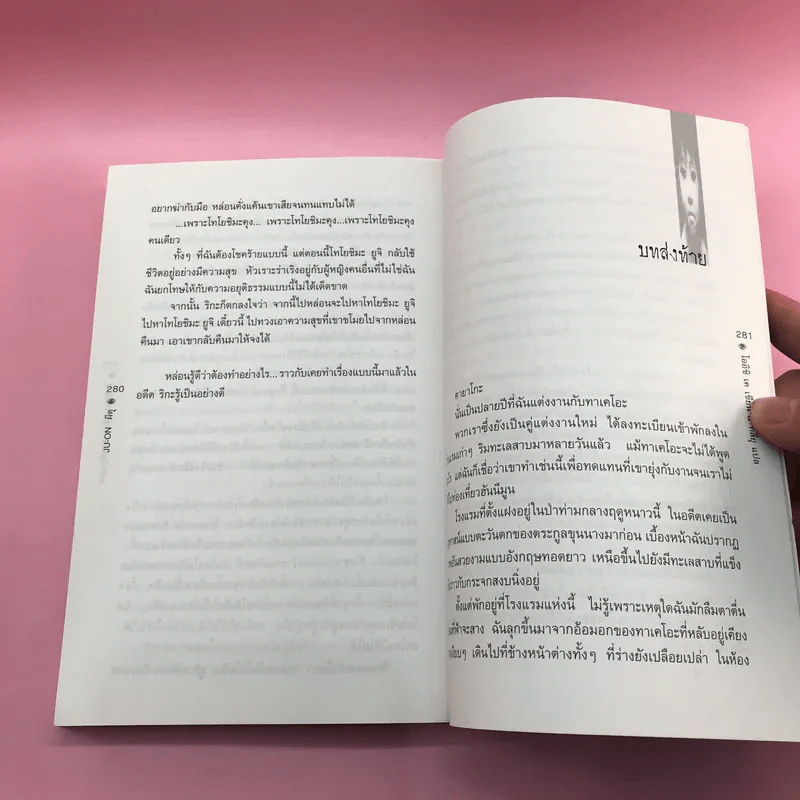 อยากฆ่ากับมือ หล่อนคั่งแค้นเขาเสียจนทนแทบไม่ได้
...เพราะโทโยชิมะคุง... เพราะโทโยชิมะคุง...เพราะโทโยชิมะคุง
คนเดียว
ทั้งๆ ที่ฉันต้องโชคร้ายแบบนี้ แต่ตอนนี้โทโยชิมะ ยูจิ กลับใช้
ชีวิตอยู่อย่างมีความสุข หัวเราะร่าเริงอยู่กับผู้หญิงคนอื่นที่ไม่ใช่ฉัน
ฉันยกโทษให้กับความอยุติธรรมแบบนี้ไม่ได้เด็ดขาด
จากนั้น ริกะก็ตกลงใจว่า จากนี้ไปหล่อนจะไปหาโทโยชิมะ ยูจิ
ไปหาโทโยชิมะ ยูจิ เดี๋ยวนี้ ไปทวงเอาความสุขที่เขาขโมยไปจากหล่อน
คืนมา เอาเขากลับคืนมาให้จงได้
หล่อนรู้ดีว่าต้องทำอย่างไร... ราวกับเคยทำเรื่องแบบนี้มาแล้วใน
อดีต ริกะรู้เป็นอย่างดี
280
JU-ON ผีดุ
บทส่งท้าย
281
โออิชิ เค เขียน
แปล
คายาโกะ
นั่นเป็นปลายปีที่ฉันแต่งงานกับทาเคโอะ
พวกเราซึ่งยังเป็นคู่แต่งงานใหม่ ได้ลงทะเบียนเข้าพักลงใน
เก่าๆ ริมทะเลสาบมาหลายวันแล้ว แม้ทาเคโอะจะไม่ได้พูด
แต่ฉันก็เชื่อว่าเขาทำเช่นนี้เพื่อทดแทนที่เขายุ่งกับงานจนเราไม่
ไปท่องเที่ยวฮันนีมูน
โรงแรมที่ตั้งแฝงอยู่ในป่าท่ามกลางฤดูหนาวนี้ ในอดีตเคยเป็น
แบบตะวันตกของตระกูลขุนนางมาก่อน เบื้องหน้าฉันปรากฏ
สวยงามแบบอังกฤษทอดยาว เหนือขึ้นไปยังมีทะเลสาบที่แข็ง
ราวกับกระจกสงบนิ่งอยู่
ตั้งแต่พักอยู่ที่โรงแรมแห่งนี้ ไม่รู้เพราะเหตุใดฉันมักลืมตาตื่น
ที่ฟ้าจะสาง ฉันลุกขึ้นมาจากอ้อมอกของทาเคโอะที่หลับอยู่เคียง
เงียบๆ เดินไปที่ข้างหน้าต่างทั้งๆ ที่ร่างยังเปลือยเปล่า ในห้อง